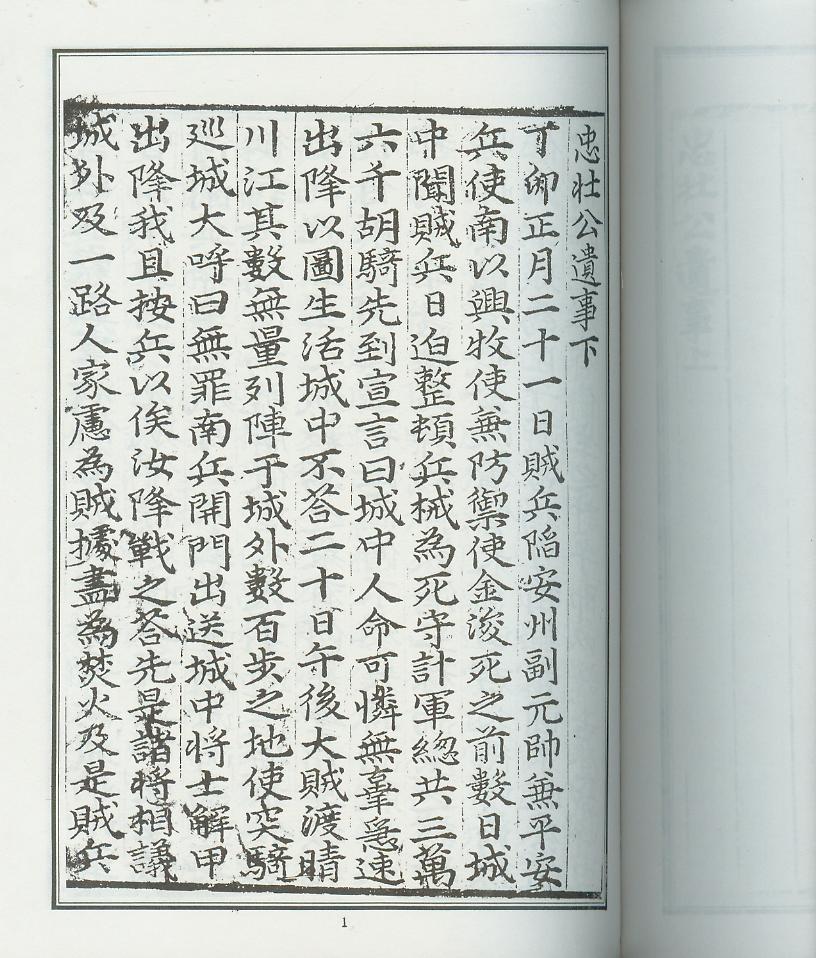 忠壯公遺事下
丁卯正月二十一日賊兵陷安州副元帥兼平安
兵使南以興牧使兼防禦使金浚死之前數日城
中聞賊兵日迫整頓兵械為死守計軍總共三萬
六千胡騎先到宣言曰城中人命可憐無辜急速
出降以圖生活城中不答二十日午後大賊渡晴
川江其數無量列陣于城外數百步之地使突騎
巡城大呼曰無罪南兵開門出送城中將士解甲
出降我且按兵以俟汝降戰之答先是諸將相議
城外及一路人家慮為賊據盡為焚火及是賊兵
1